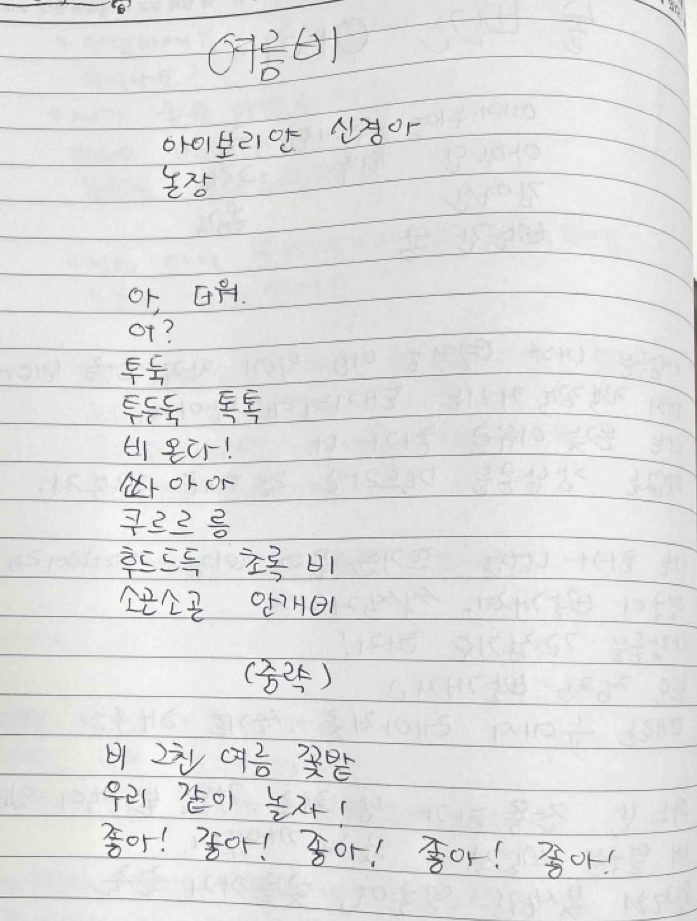 여름비
아이보리얀 신경아
논장
아, 더워.
어?
투둑
투두둑 톡톡
비 온다!
쏴아아아
쿠르르릉
후드드득 초록 비
소곤소곤 안개비
(중략)
비 그친 여름 꽃밭
우리 같이 놀자!
좋아! 좋아! 좋아! 좋아! 좋아!